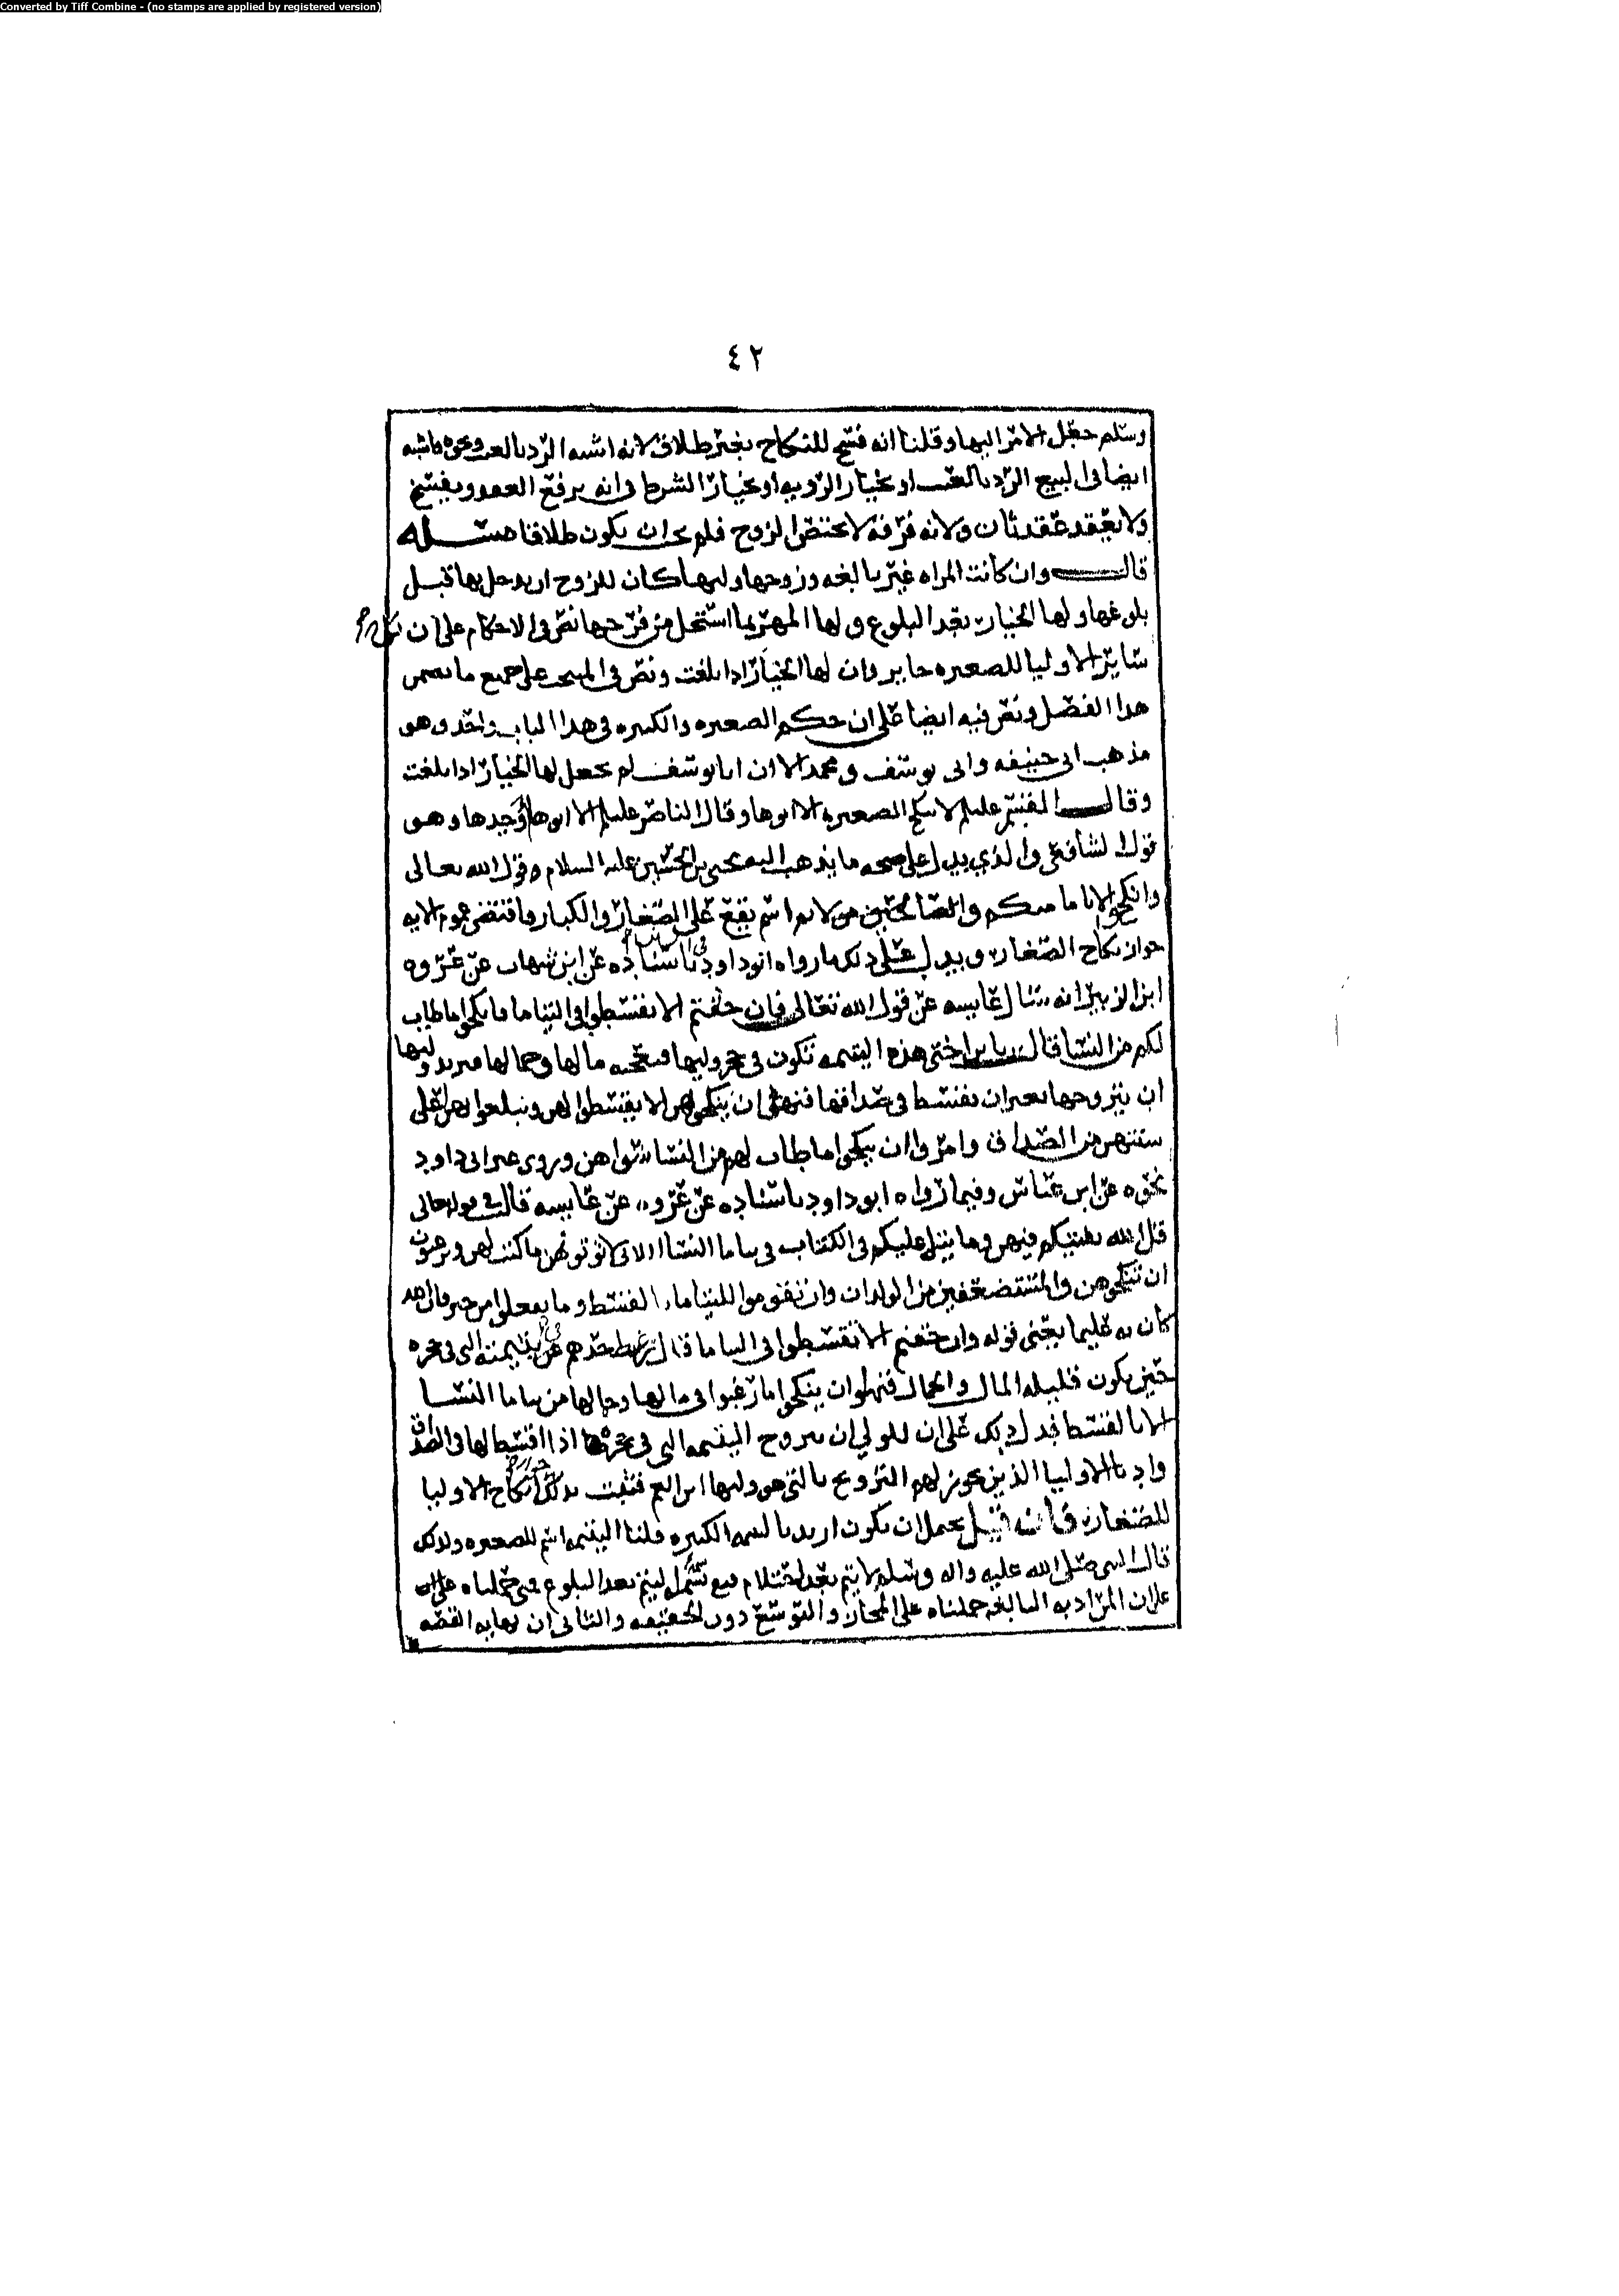 Converted by Tiff Combine - (no stamps are applied by registered version)
٤٢
وسلم جعل الامر اليها وقلنا انه فسخ للنكاح بغير طلاق لانه اشبه الرد بالعيب ونحوه فاشبه
ايضا في البيع الرد بالعيب او بخيار الرويه او بخيار الشرط في انه يرفع العقد ويفسخ
ولا يعقد عقد ثان ولانه فرقة لا تختص الزوج فلم يجز ان يكون طلاقا مسئله
قال وان كانت المراه غير بالغه وزوجها وليها كان للزوج ان يدخل بها قبل
بلوغها ولها الخيار بعد البلوع ولها المهر بما استحل من فرجها نص في الاحكام على ان نكاح
ساير الاوليا للصغيره جايز وان لها الخيار اذا بلغت ونص في المنتخب على جميع ما تضمن
هذا الفصل ونص فيه ايضا على ان حكم الصغيره والكبيره في هذا الباب واحد وهو
مذهب ابي حنيفه وابي يوسف ومحمد الا ان ابا يوسف لم يجعل لها الخيار اذا بلغت
وقال القسم عليلم لا ينكح الصغيره الا ابوها وقال الناصر عليلم الا ابوها وجدها وهو
قول الشافعي والذي يدل على صحه ما يذهب اليه يحيى بن الحسين عليه السلام قول الله تعالى
وانكحوا الاياما منكم والصالحين من الايم اسم يقع على الصغار والكبار فاقتضى عموم الايه
جواز نكاح الصغار ويدل على ذلك ما رواه ابو داود باسناده عن ابن شهاب عن عروه
ابن الزبير انه سال عايشه عن قول الله تعالى فان خفتم الا تقسطوا في اليتاما فانكحوا ما طاب
لكم من النسا قالت يابن اختي هذه اليتيمه تكون في حجر وليها فتعجبه مالها وجمالها فيريد وليها
ان يتزوجها بغير ان يقسط في صداقها فنهوا ان ينكحوهن الا ان يقسطوا لهن ويبلغوا بهن اعلى
سنتهن من الصداق وامروا ان ينكحوا ما طاب لهم من النسا سواهن وروى عن ابي داود
نحوه عن ابن عباس وفيما رواه ابو داود باسناده عن عروه عن عايشه قالت في قوله تعالى
قل الله يفتيكم فيهن وما يتلى عليكم في الكتاب في يتاما النسا اللاتي لا توتونهن ما كتب لهن وترغبون
ان تنكحوهن والمستضعفين من الولدان وان تقوموا لليتاما بالقسط وما تفعلوا من خير فان الله
كان به عليما يعني قوله وان خفتم الا تقسطوا في اليتاما قال رغبة احدهم عن يتيمته التي في حجره
حين تكون قليله المال والجمال فنهوا ان ينكحوا ما رغبوا في مالها وجمالها من يتاما النسا
الا بالقسط فدل ذلك على ان للولي ان يتزوج اليتيمه التي في حجره اذا اقسط لها في الصداق
وادنا الاوليا الذين يجوز لهم التزويج بالتي هو وليها ابن العم فثبت بذلك جواز انكاح الاوليا
للصغار فان قيل يحتمل ان يكون اريد باليتيمه الكبيره قلنا اليتيمه اسم للصغيره ولذلك
قال النبي صلى الله عليه واله وسلم لا يتم بعد احتلام فمنع اليتم بعد البلوع فمتى حملناه على ان
على ان المراد به البالغه حملناه على المجاز والتوسع دون الحقيقه والثاني ان نهايه القصه